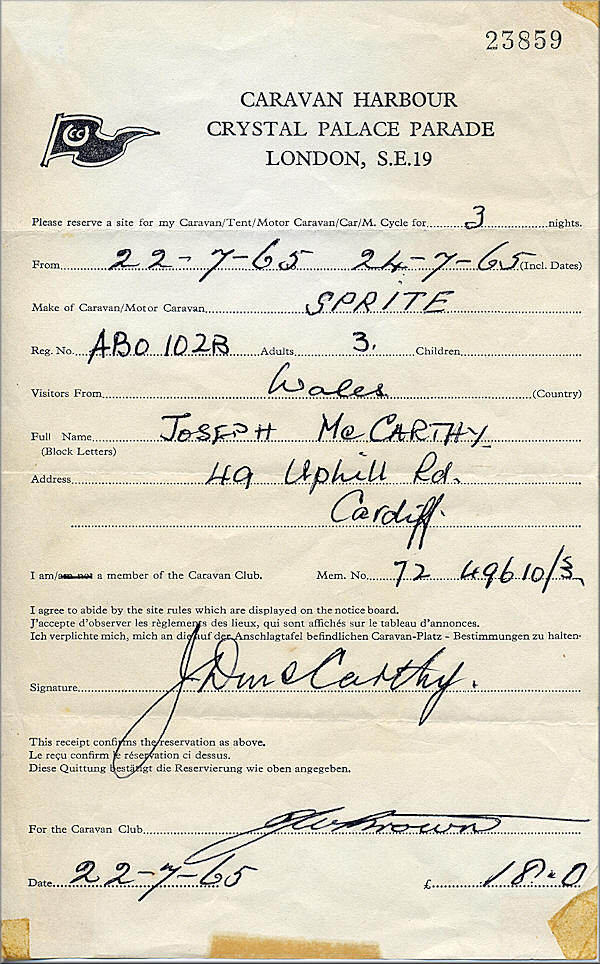 23859
CARAVAN HARBOUR
CRYSTAL PALACE PARADE
LONDON, S.E.19
CC
Please reserve a site for my Caravan/Tent/Motor Caravan/Car/M. Cycle for 3 nights.
From 22-7-65 24-7-65 (Incl. Dates)
Make of Caravan/Motor Caravan SPRITE
Reg. No. ABO 102B Adults 3. Children
Visitors From Wales (Country)
Full Name JOSEPH McCARTHY
(Block Letters)
Address 49 Uphill Rd.
Cardiff.
I am/am not a member of the Caravan Club. Mem. No. 72 49610/S
I agree to abide by the site rules which are displayed on the notice board.
J'accepte d'observer les règlements des lieux, qui sont affichés sur le tableau d'annonces.
Ich verplichte mich, mich an die auf der Anschlagtafel befindlichen Caravan-Platz - Bestimmungen zu halten.
Signature J D McCarthy.
This receipt confirms the reservation as above.
Le reçu confirm le réservation ci dessus.
Diese Quittung bestätigt die Reservierung wie oben angegeben.
For the Caravan Club Brown
Date 22-7-65 £ 18-0